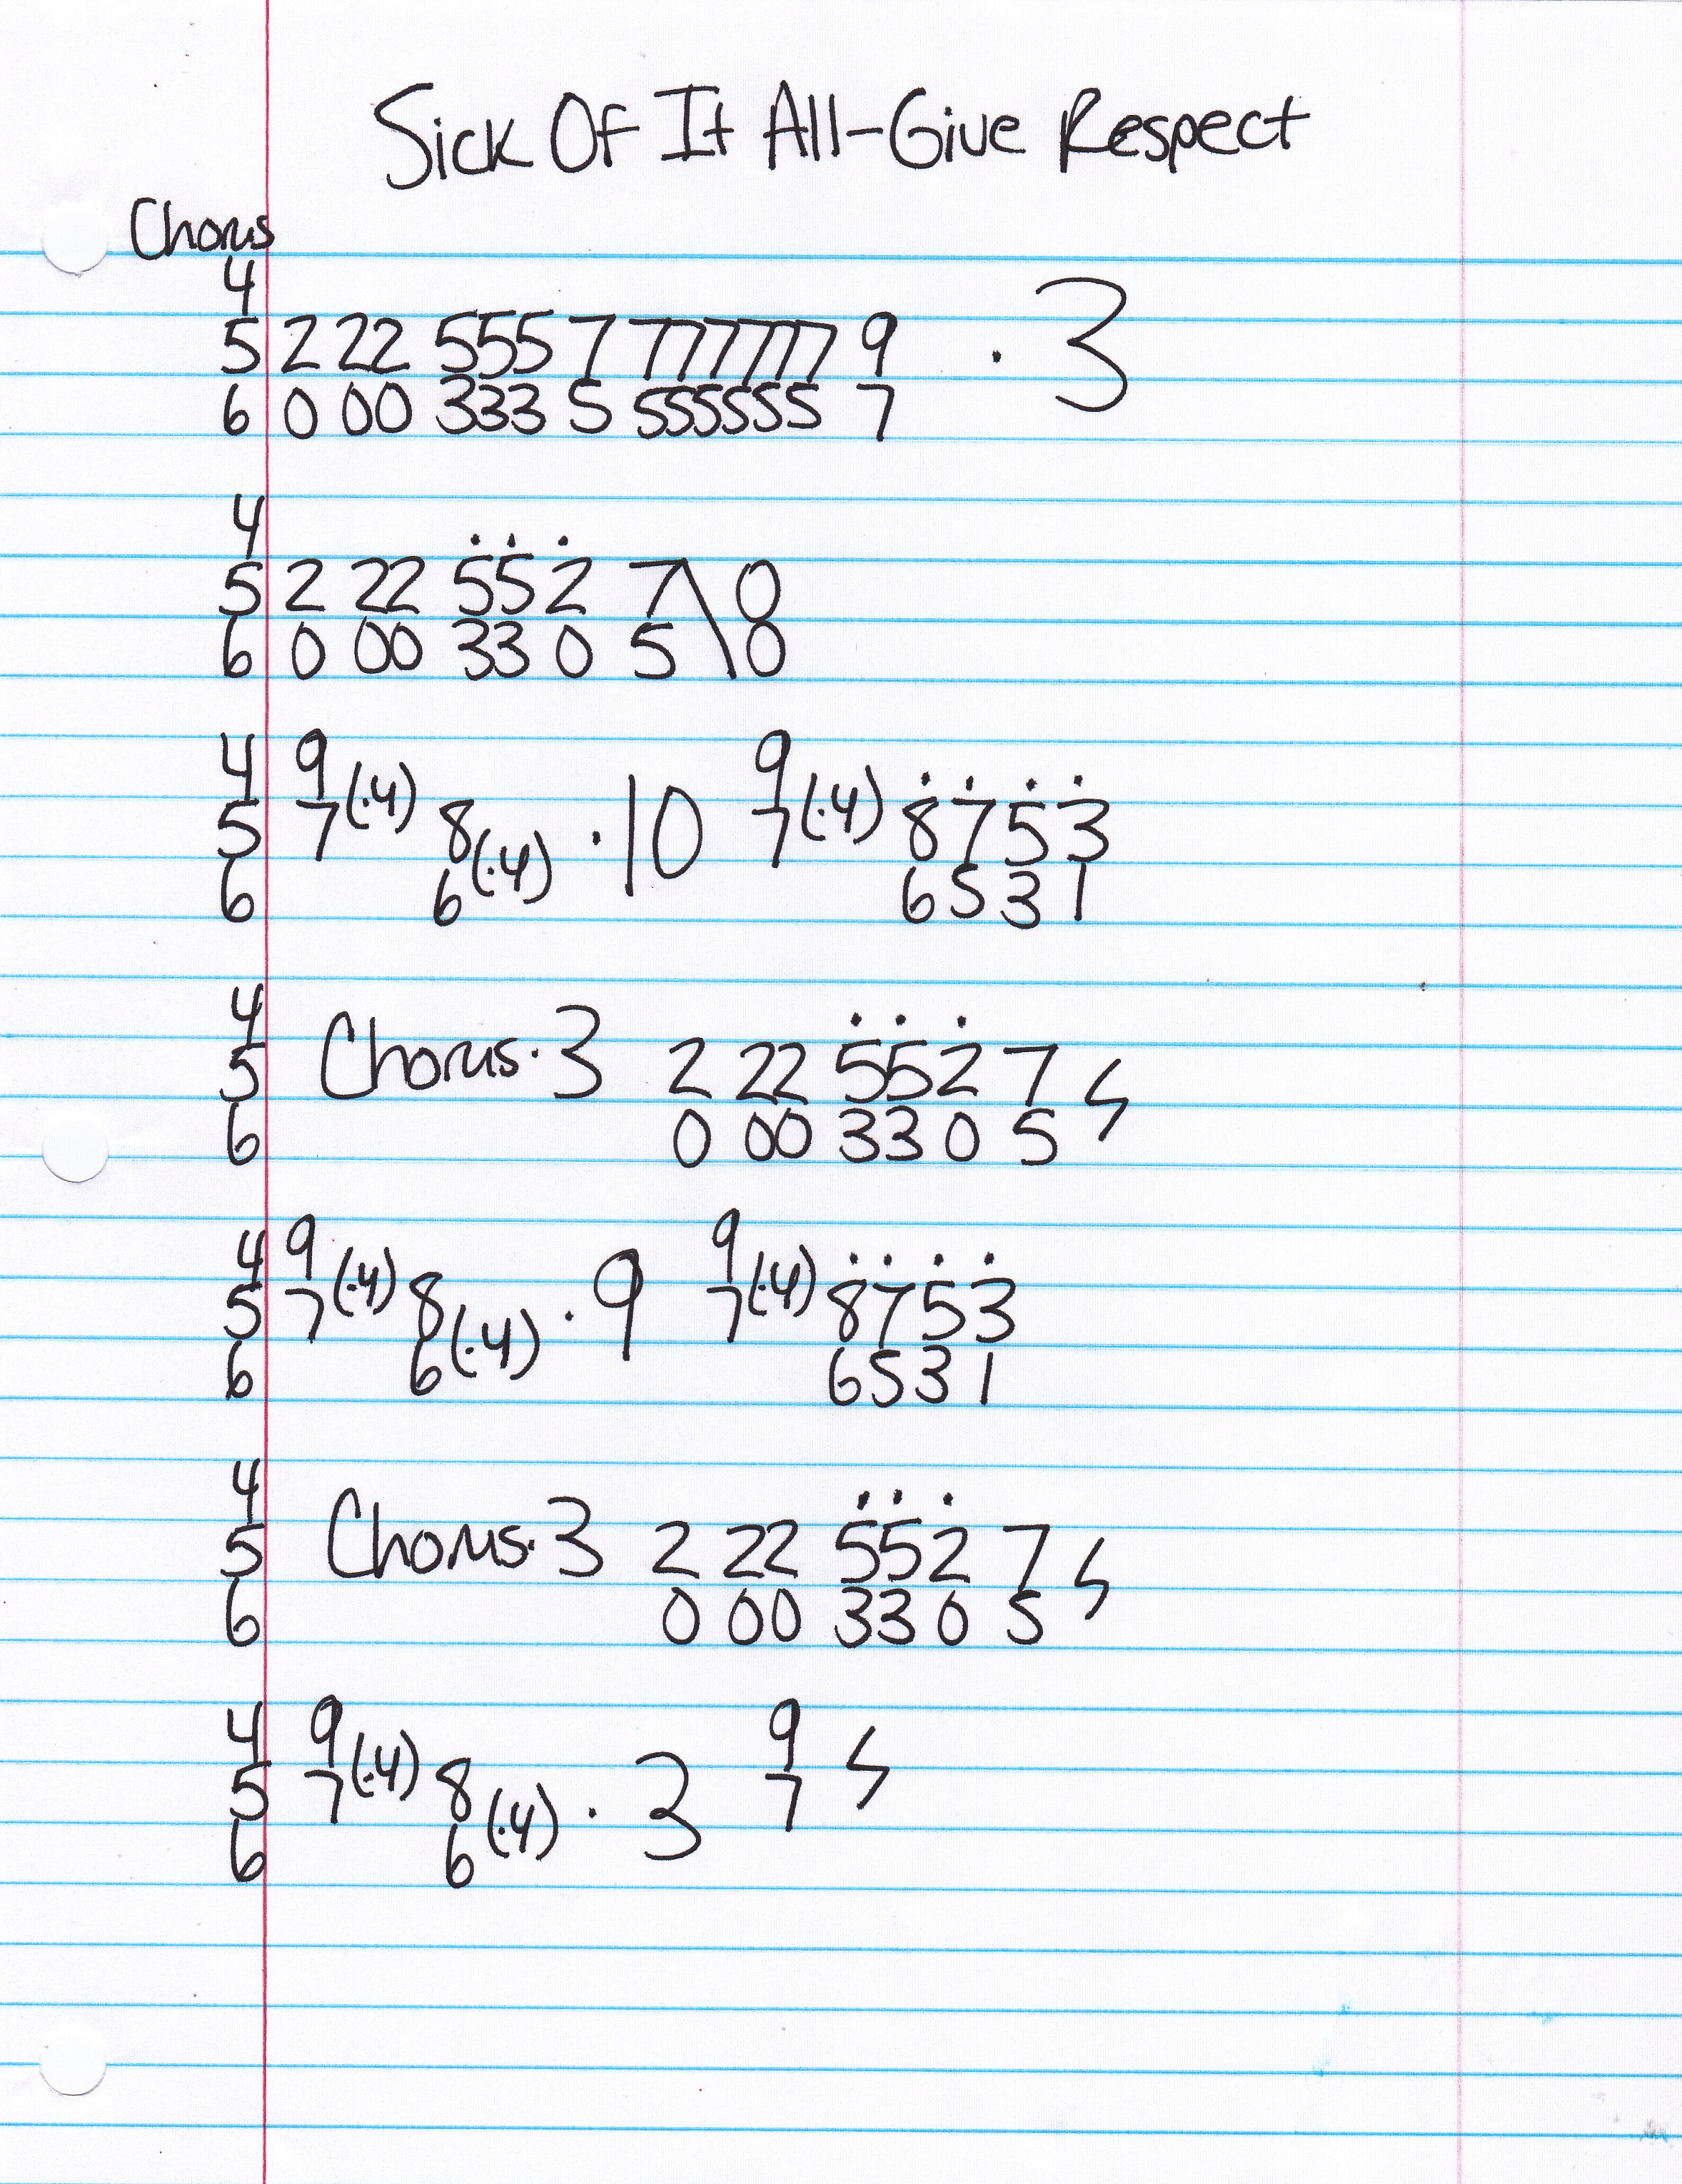 Sick Of It All-Give Respect
Chorus
4
5 2 22 555 7 777777 9 · 3
6 0 00 333 5 555555 7
4
5 2 22 552 7\ 0
6 0 00 33 0 5 0
4 9 9
5 7(·4) 8 · 10 7(·4) 8 7 5 3
6 6(·4) 6 5 3 1
4
5 Chorus·3 2 22 552 7 ϟ
6 0 00 33 0 5
4 9 9
5 7(·4) 8 · 9 7(·4) 8 7 5 3
6 6(·4) 6 5 3 1
4
5 Chorus·3 2 22 552 7 ϟ
6 0 00 33 0 5
4 9 9
5 7(·4) 8 · 3 7 ϟ
6 6(·4)